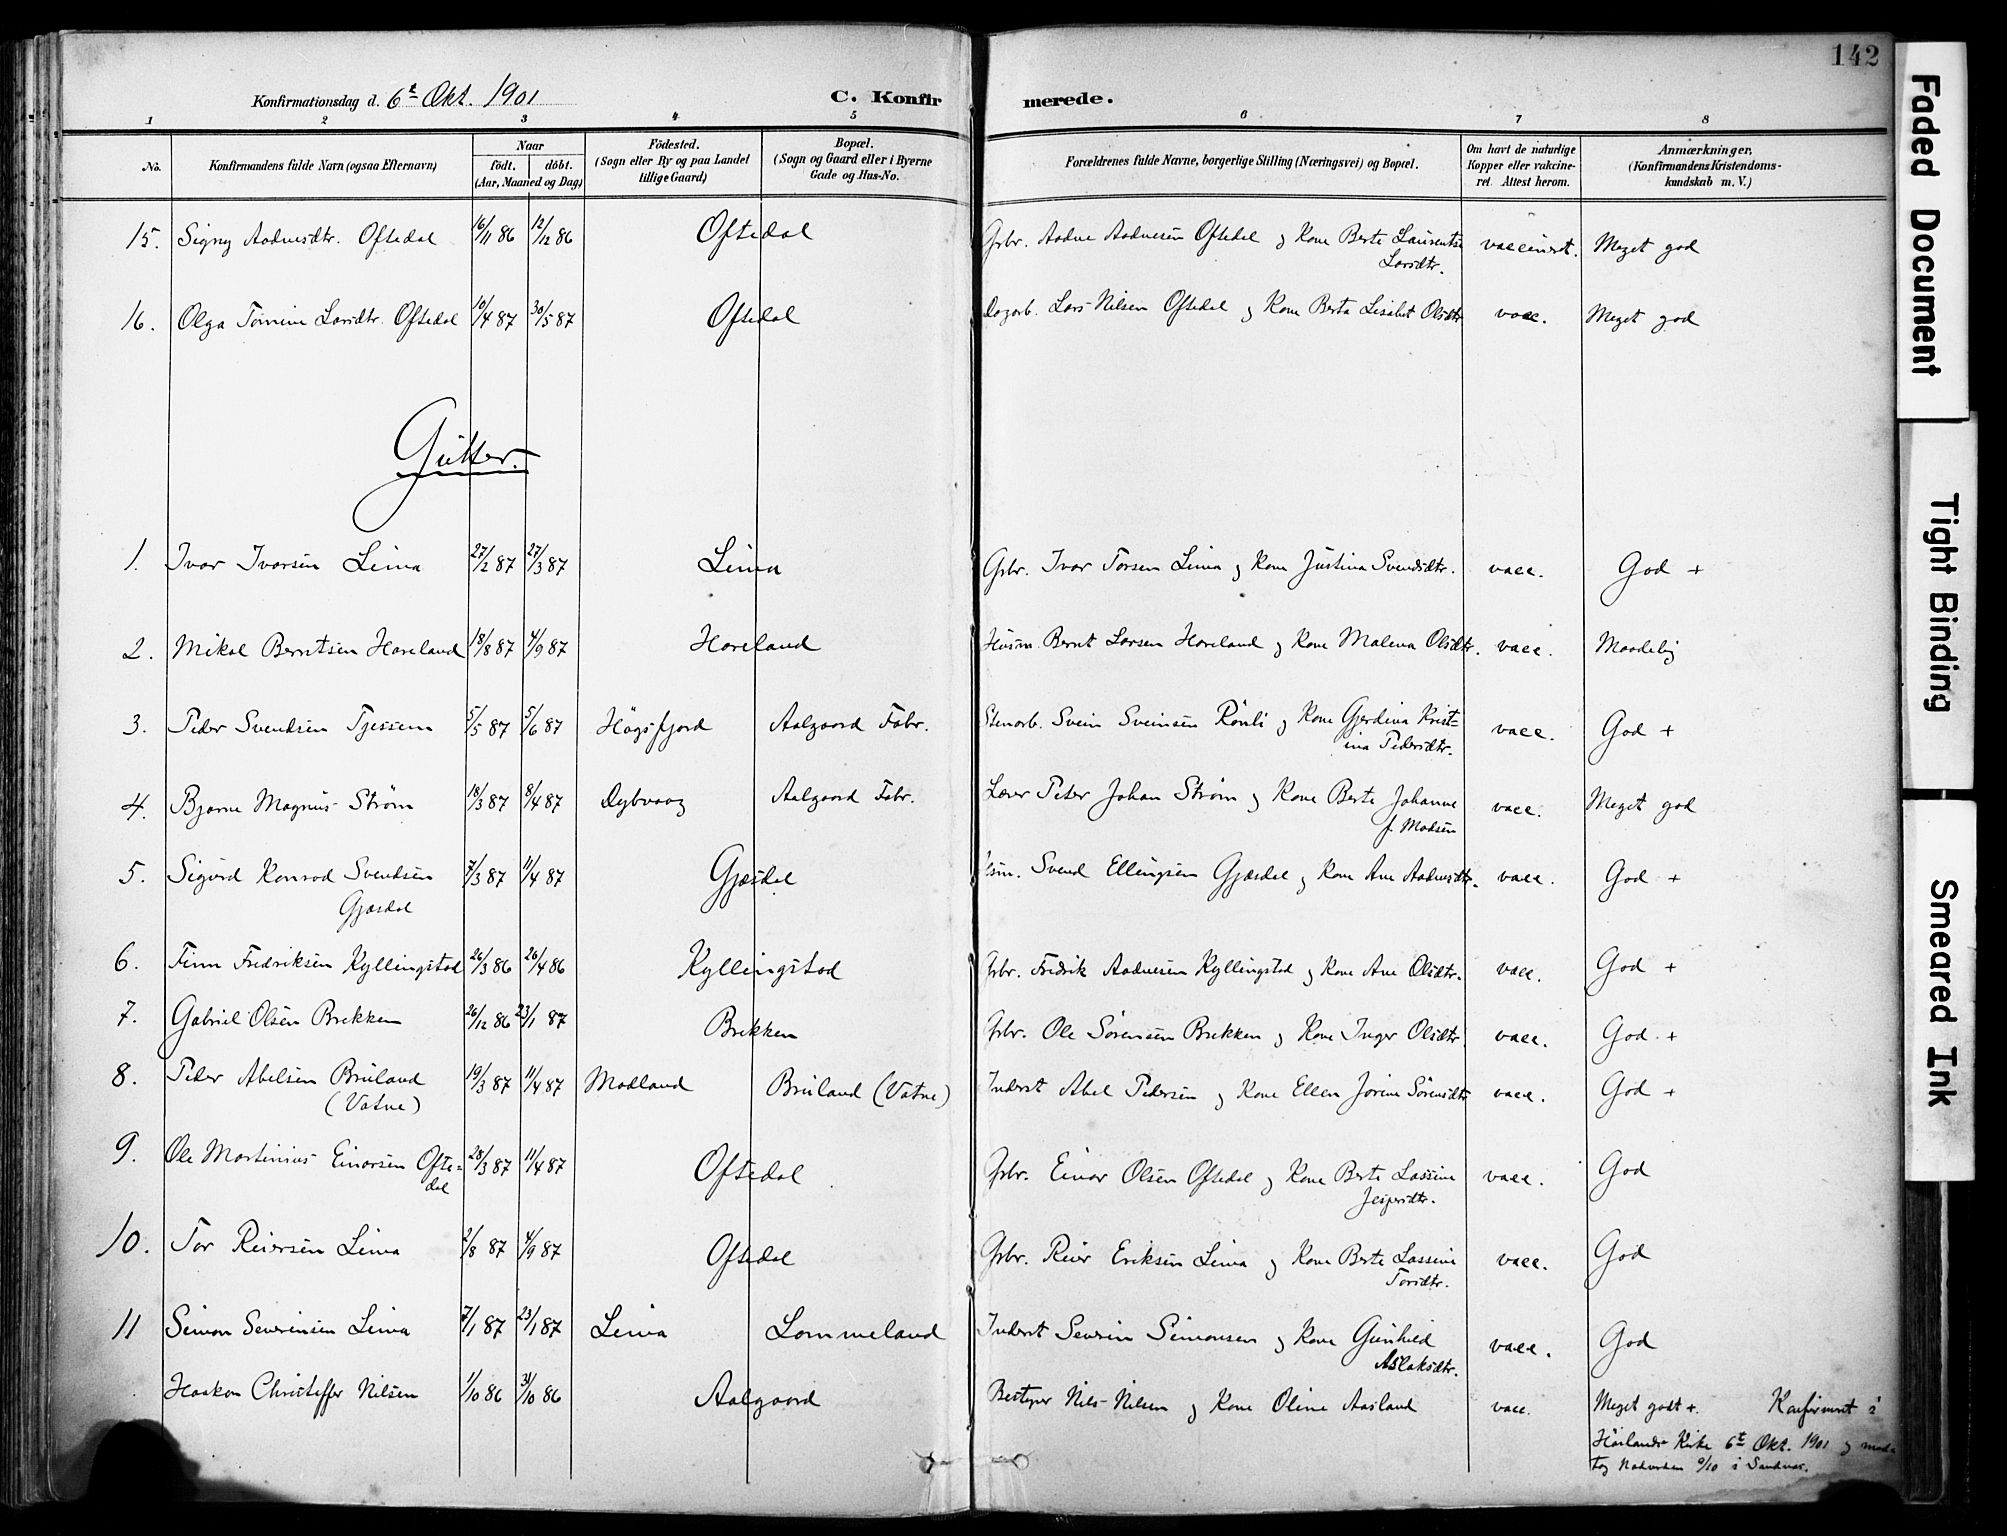 142
Konfirmationsdag d. 6te Okt. 1901
C. Konfirmerede.
1 2 3 4 5 6 7 8
No. Konfirmandens fulde Navn (ogsaa Efternavn) Naar födt. döbt. (Aar, Maaned og Dag) Födested. (Sogn eller By og paa Landet tillige Gaard) Bopæl. (Sogn og Gaard eller i Byerne Gade og Hus-No. Forældrenes fulde Navne, borgerlige Stilling (Næringsvei) og Bopæl. Om havt de naturlige Kopper eller vakcineret. Attest herom. Anmærkninger, (Konfirmandens Kristendomskundskab m. V.)
15. Signy Aadnesdtr. Oftedal 16/11 86 12/12 86 Oftedal Gbr. Aadne Aadnesen Oftedal og Kone Berte Laurentse Larsdtr. vaccineret. Meget god
16. Olga Tomine Larsdtr. Oftedal 10/4 87 30/5 87 Oftedal Dagarb. Lars Nilsen Oftedal og Kone Berta Lisabet Olsdtr vacc. Meget god
Gutter.
1. Ivar Ivarsen Lima 27/2 87 27/3 87 Lima Gbr. Ivar Torsen Lima og Kone Justina Svendsdtr. vacc. God +
2. Mikal Berntsen Haveland 18/8 87 4/9 87 Haveland Husm. Bernt Larsen Haveland og Kone Malena Olsdtr. vacc. Maadelig
3. Peder Svendsen Tjessem 5/5 87 5/6 87 Högsfjord Aalgaard Fabr. Stenarb. Svein Sveinsen Rönli og Kone Gjerdina Kristina Pedersdtr. vacc. God +
4. Bjarne Magnus Ström 18/3 87 8/4 87 Dybvaag Aalgaard Fabr. Lærer Peter Johan Ström og Kone Berte Johanne f. Madsen vacc. Meget god
5. Sigurd Konrad Svendsen Gjæsdal 7/3 87 11/4 87 Gjæsdal Svend Ellingsen Gjæsdal og Kone Ane Aadnesdtr. vacc. God +
6. Finn Fredriksen Kyllingstad 26/3 86 26/4 86 Kyllingstad Gbr. Fredrik Aadnesen Kyllingstad og Kone Ane Olsdtr. vacc. God +
7. Gabriel Olsen Brekken 26/12 86 23/1 87 Brekken Gbr. Ole Sörensen Brekken og Kone Inger Olsdtr. vacc. God +
8. Peder Abelsen Bruland (Vatne) 19/3 87 11/4 87 Madland Bruland (Vatne) Inderst Abel Pedersen og Kone Ellen Jorine Sörensdtr vacc. God +
9. Ole Martinius Einarsen Oftedal 28/3 87 11/4 87 Oftedal Gbr. Einar Olsen Oftedal og Kone Berte Lassine Jespersdtr. vacc. God
10. Tor Reiersen Lima 2/8 87 4/9 87 Oftedal Gbr. Reier Eriksen Lima og Kone Berte Lassine Torsdtr. vacc. God
11 Simon Severinsen Lima 7/1 87 23/1 87 Lima Lommeland Inderst Severin Simonsen og Kone Gunhild Aslaksdtr. vacc. God
Haakon Christoffer Nilsen 1/10 86 31/10 86 Aalgaard Bestyrer Nils Nilsen og Kone Oline Aasland vacc. Meget godt +. Konfirmeret i
Höilands Kirke 6te Okt. 1901 og modtog Nadverden 9/10 i Sandnes.
Faded Document
Tight Binding
Smeared Ink